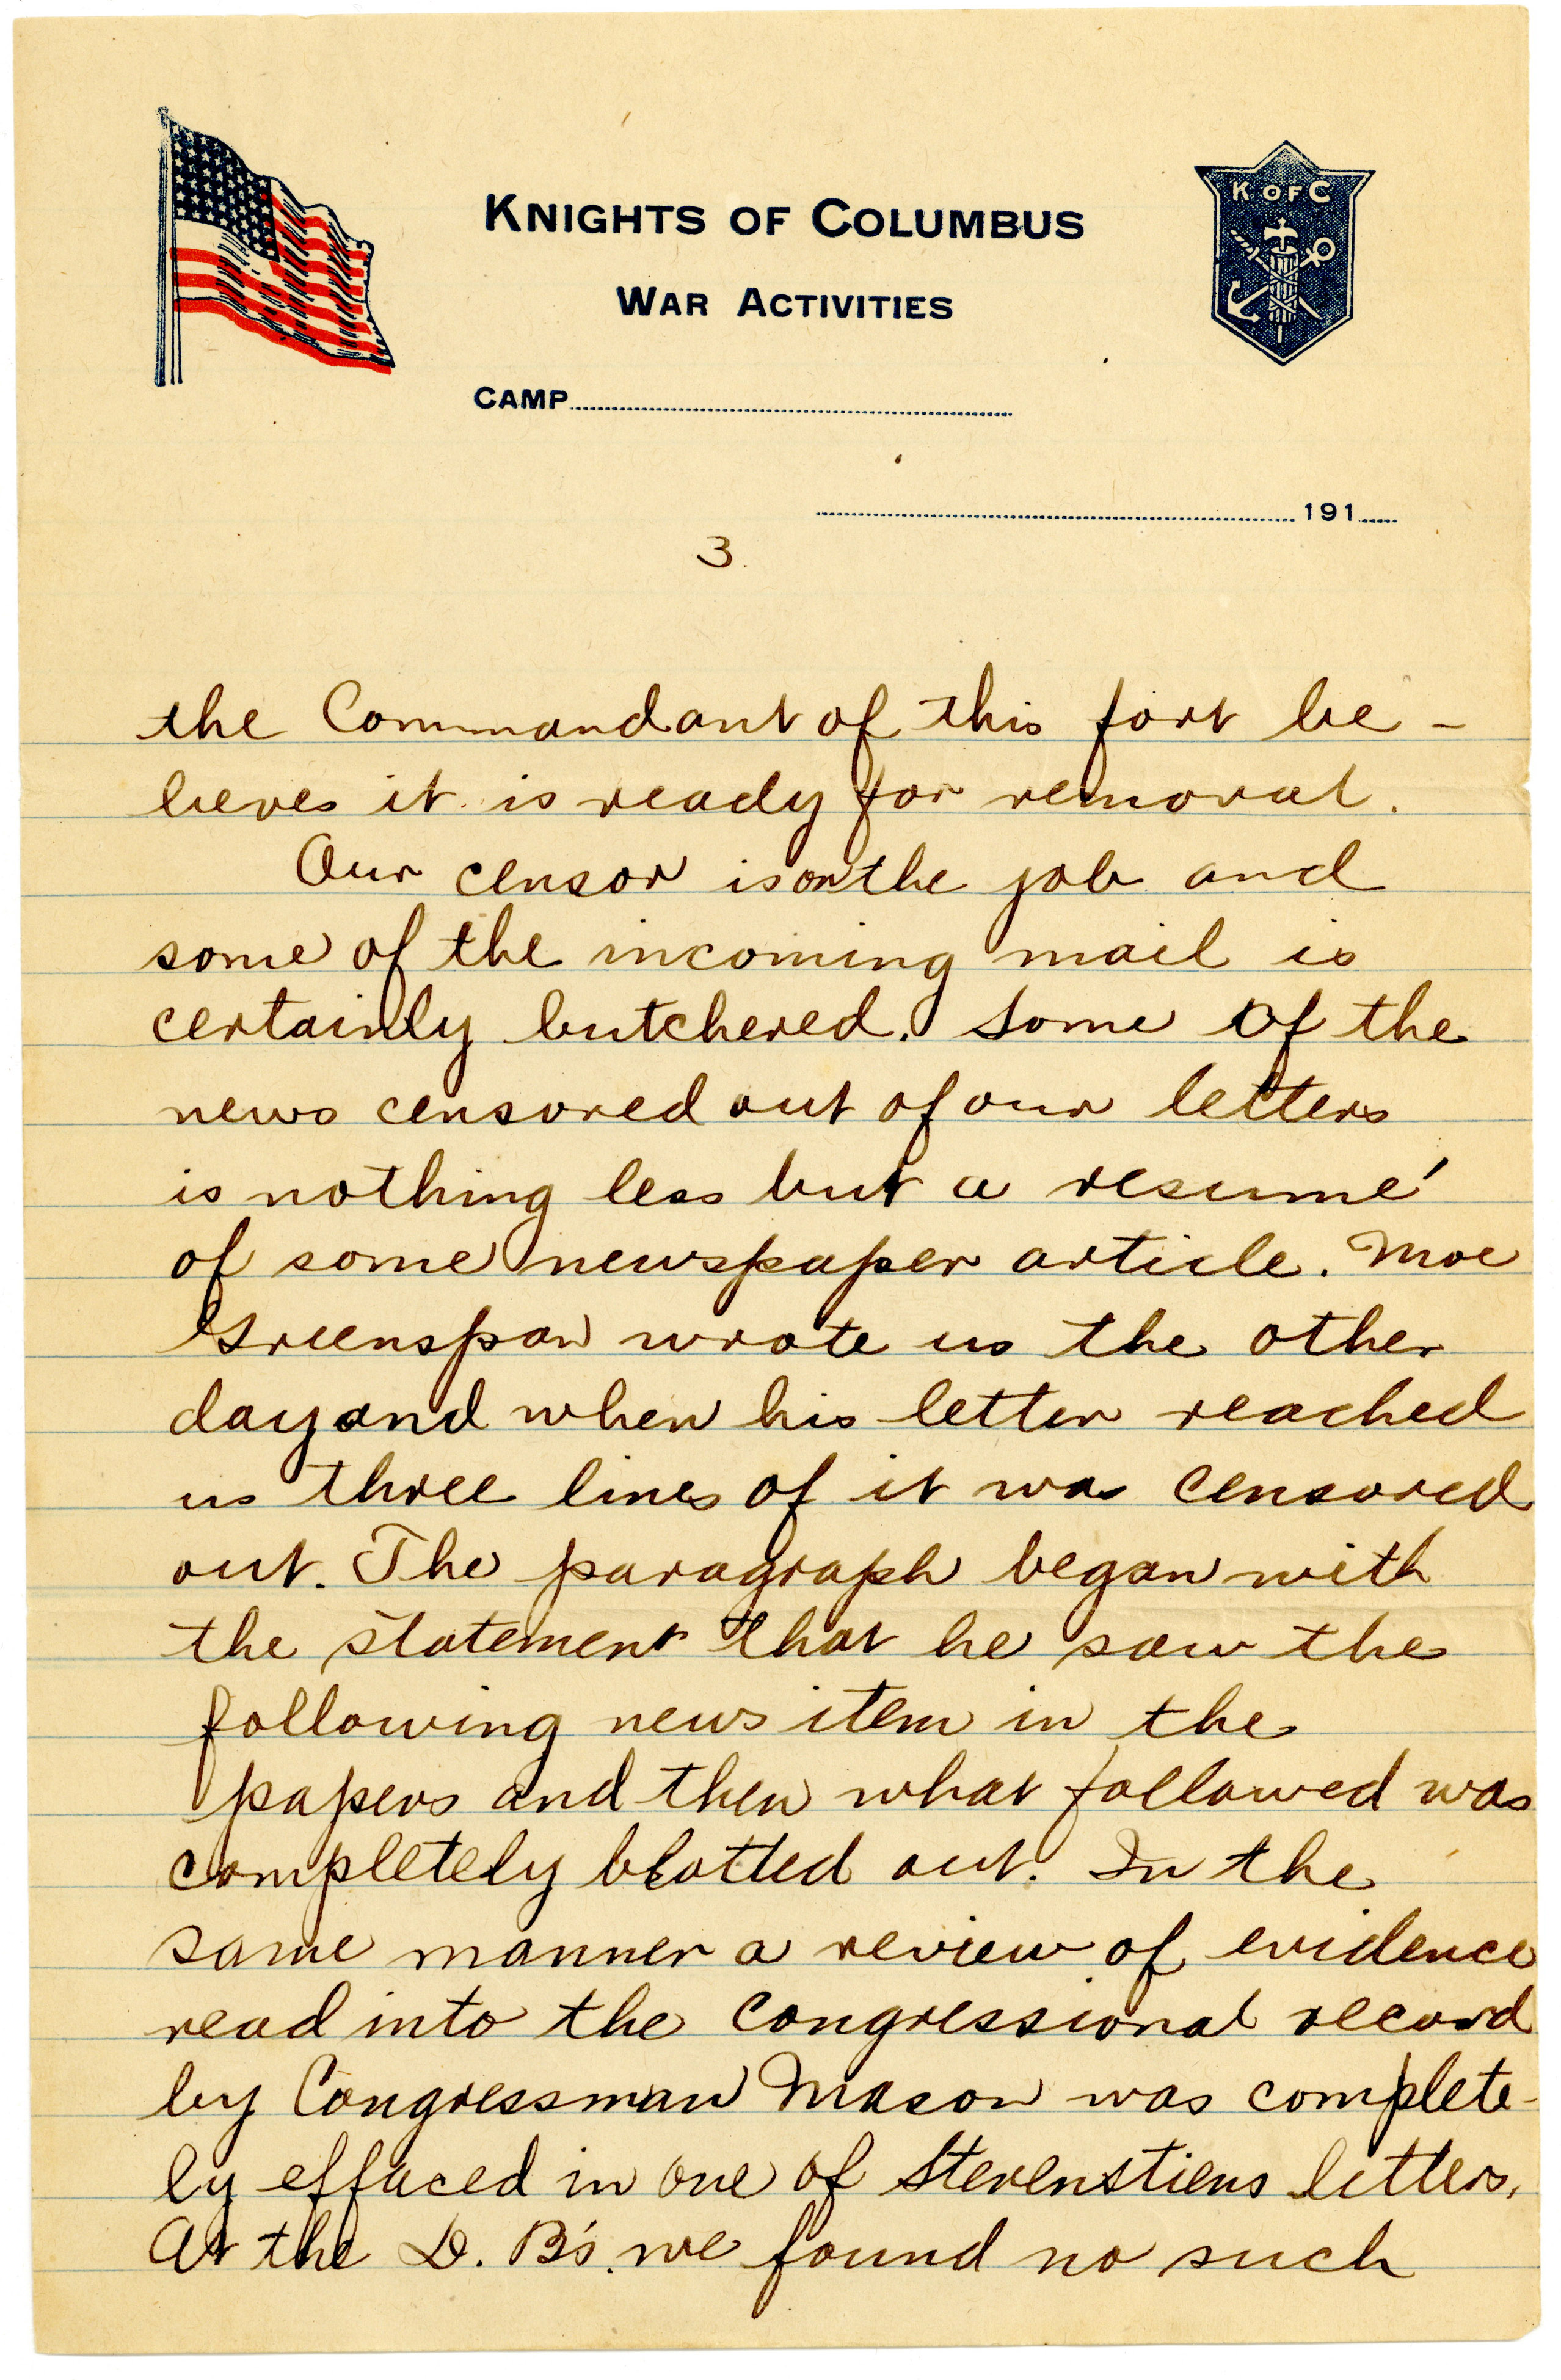 K OF C
KNIGHTS OF COLUMBUS
WAR ACTIVITIES
CAMP
191
3.
the Commandant of this fort be-
lieves it is ready for removal.
Our censor is on the job and
some of the incoming mail is
certainly butchered. Some of the
news censored out of our letters
is nothing less but a resumé
of some newspaper article. Moe
Greenspan wrote us the other
day and when his letter reached
us three lines of it was censored
out. The paragraph began with
the statement that he saw the
following news item in the
papers and then what followed was
completely blotted out. In the
same manner a review of evidence
read into the Congressional record
by Congressman Mason was complete-
ly effaced in one of Stevenstiens letters.
At the D. B's. we found no such